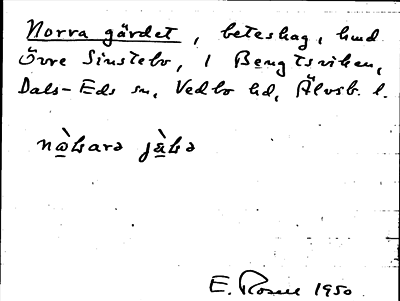 Norra gärdet, beteshag, hmd
Övre Sinstebo, i Bengtsviken,
Dals-Eds sn, Vedbo hd, Älvsb. l.
E. Rosell 1950